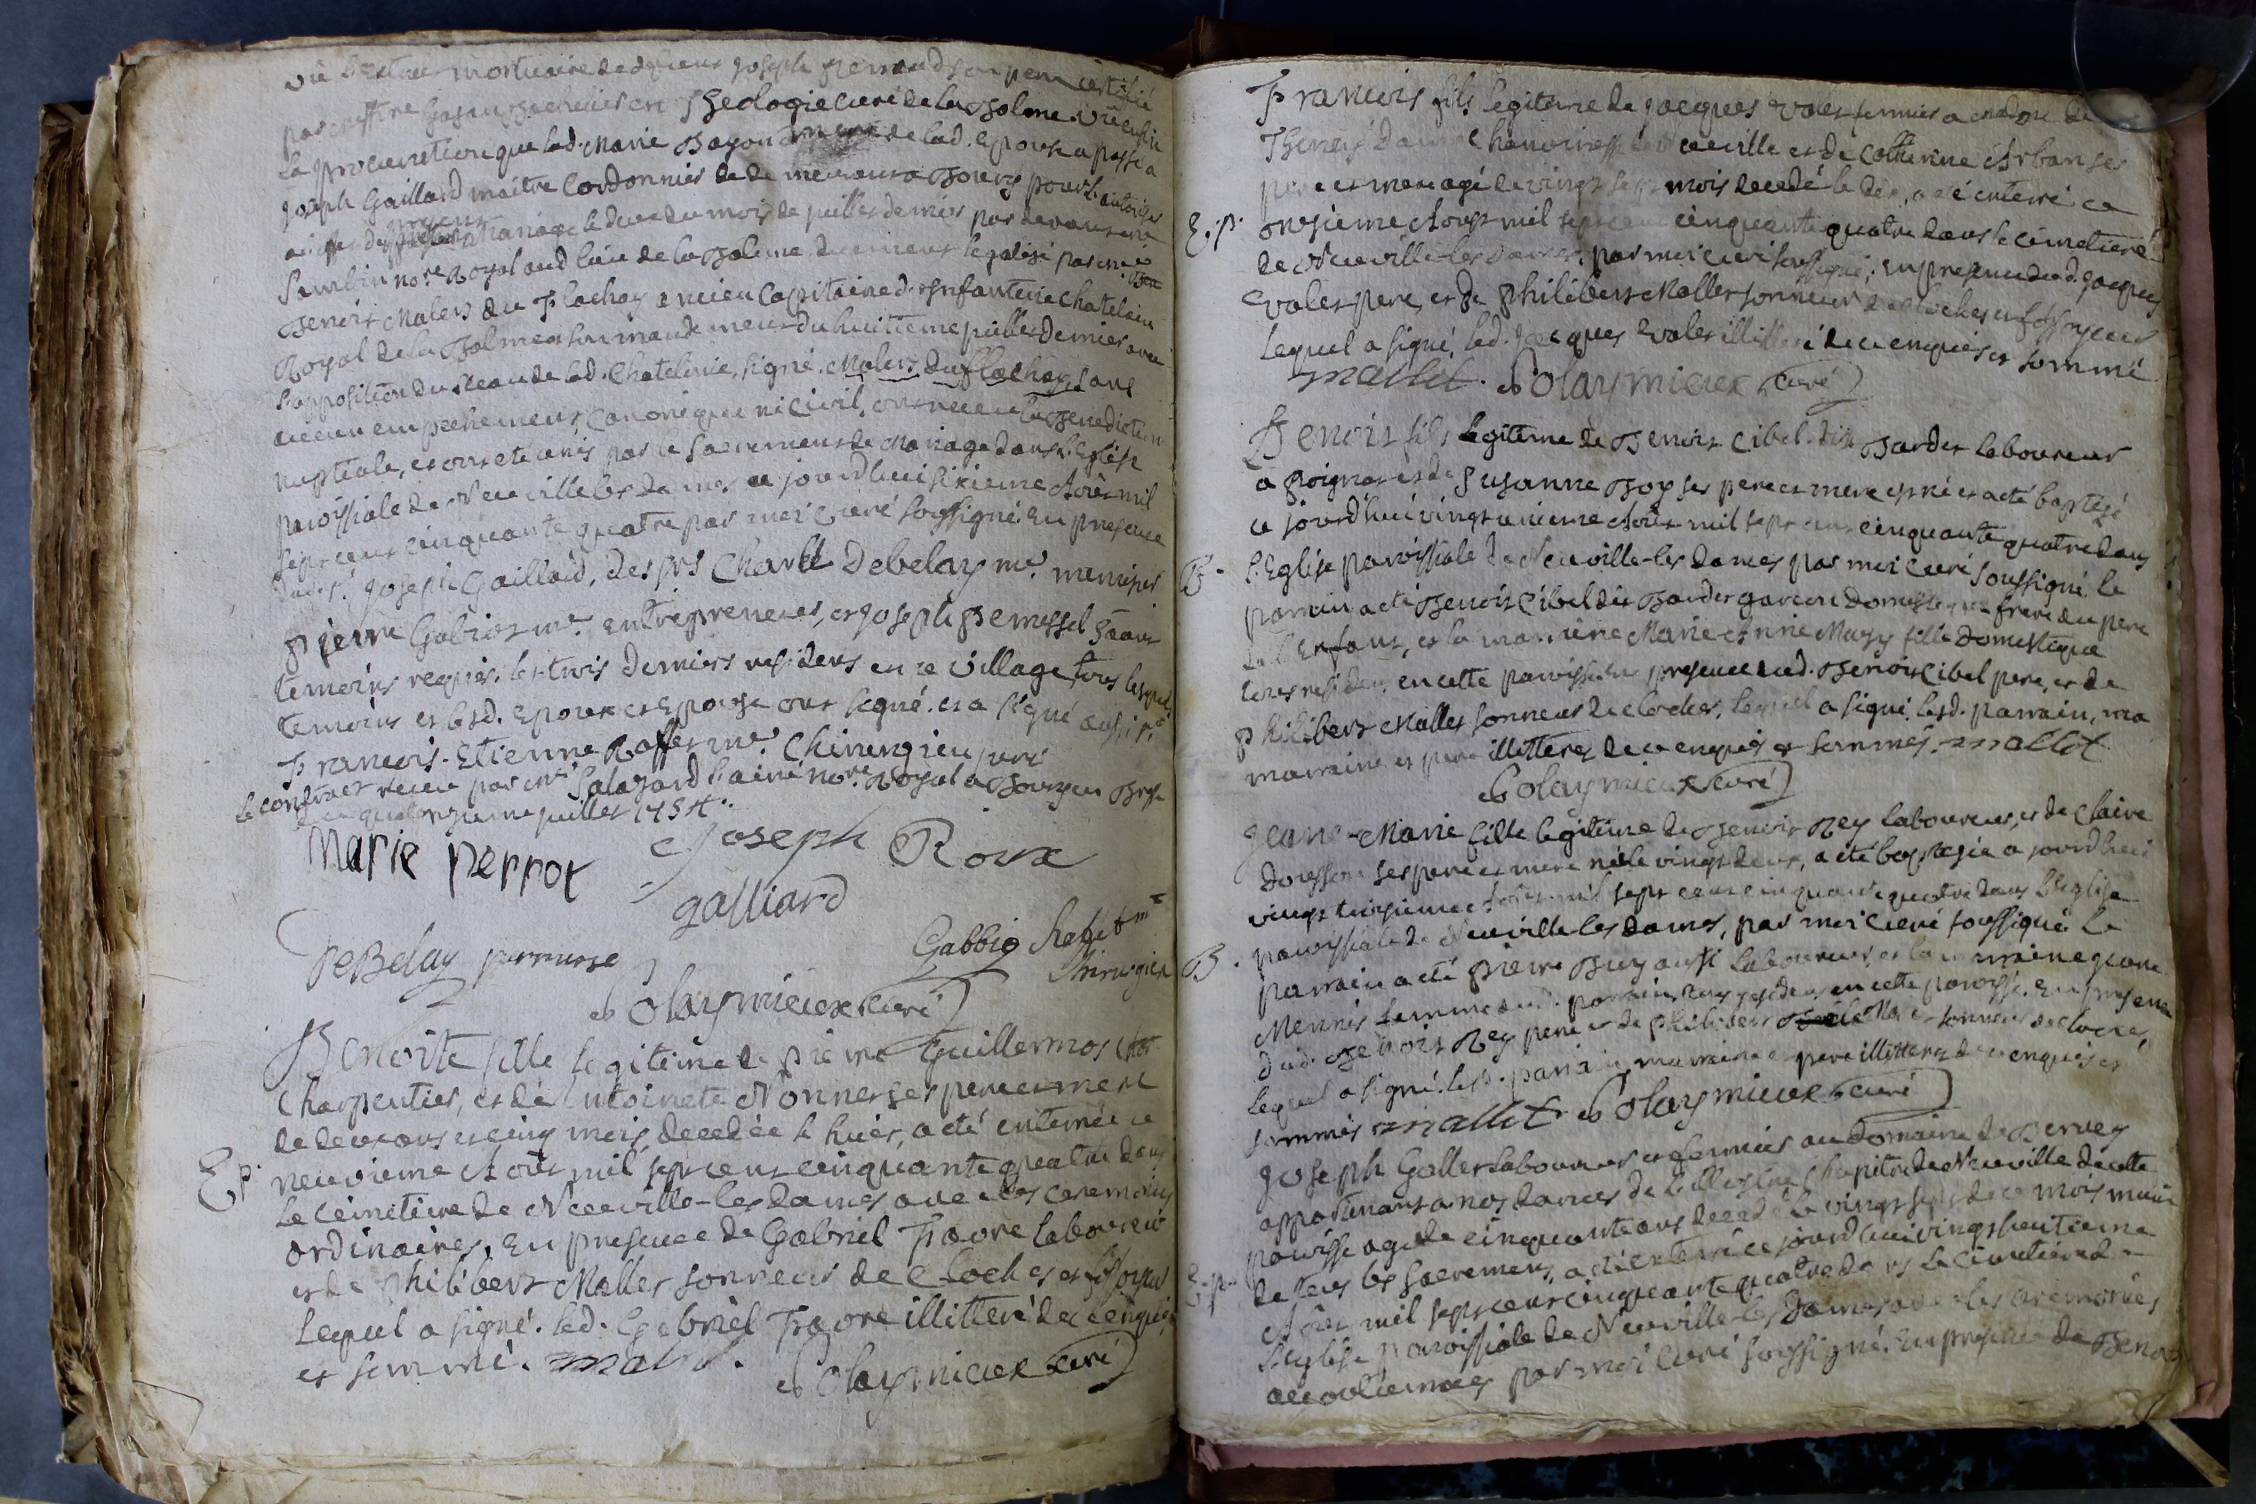 vû l'extrait mortuaire de defunt Joseph perraud son pere certifié
par messire bachelier en Theologie curé de la Balme. Vû enfin
la procuration que lad. Marie mere de lad. Epouse a passé a
joseph Gaillard maitre Cordonnier demeurant a Bourg pour l'autoriser
mariage le du mois de juillet dernier par devant me
no.re Royal aud lieu de la Balme duement legalisé par
Benoit Malets du Flachay ancien Capitaine d'infanterie chatelain
Royal de la Balme du huitieme juillet dernier avec
l'apposition du sceau de lad. Chatelenie, signé. Malets duflachay, sans
aucun empechement Canonique ni civil, ont receu la Benediction
nuptiale, et ont eté unis par le Sacrement de Mariage dans l'Eglise
paroissiale de Neuville les dames ce jourd'hui sixieme Aout mil
sept cent cinquante quatre par moi Curé soussigné. En presence
dud. Sr. joseph Gaillard, des srs Charle Debelay me. menuisier
pierre Gabiot me. entrepreneur, et joseph
temoins requis. les trois derniers residens en ce village, tous lesquels
temoins et lesd. Epoux et Epouse ont signé. et a signé aussi sr.
Francois-Etienne Raffet me. Chirurgien juré
le contract receu par me. Salazard l'ainé no.re Royal a Bourg en Bresse
le quatorzieme juillet 1754.
Marie perrot Joseph Roux
galliard
DeBelay Gabbio Rafet me
Chirurgien
Colaymieux curé
Benoite fille legitime de pierre Guillermos
Charpentier, et de Antoinete Nonner ses pere et mere
de deux ans et cinq mois decedée le hier, a eté enterrée ce
E.p. neuvieme Aout mil sept cent cinquante quatre dans
le cimetiere de Neuville-les dames avec les ceremonies
ordinaires, En presence de Gabriel Favre laboureur
et de philibert Mallet sonneur de Cloches et fossoyeur
Lequel a signé. led. Gabriel Favre illitteré de ce enquis
et sommé. mallet. Colaymieux curé
Francois fils legitime de jacques Valet fermier a
chanoinesse de Neuville et de Catherine Arban ses
pere et mere agé de vingt sept mois decedé le dix, a eté enterré ce
E.p. onzieme Aout mil sept cent cinquante quatre dans le cimetiere
de Neuville-les dames, par moi curé soussigné, en presence dud. jacques
Valet pere, et de philibert Mallet sonneur de cloches et fossoyeur
Lequel a signé, led. jacques Valet illitteré de ce enquis et sommé
mallet. Colaymieux curé
Benoit fils legitime de Benoit Cibel dit Bardet laboureur
a poignat et de Susanne Boy ses pere et mere est né et a eté baptizé
ce jourd'hui vingt unieme Aout mil sept cent cinquante quatre dans
B. l'Eglise paroissiale de Neuville-les dames par moi curé soussigné. le
parrain a eté Benoit Cibel dit Bardet garcon domestique frere du pere
de l'Enfant, et la marreine Marie-Anne Mazy fille domestique
tous residens en cette paroisse. en presence dud. Benoit Cibel pere, et de
philibert Mallet sonneur de cloches, lequel a signé, lesd. parrain, ma
marraine et pere illitterez de ce enquis et sommés. mallet.
Colaymieux curé
jeanne-Marie fille legitime de Benoit Rey laboureur, et de Claire
Douesson ses pere et mere née le vingt deux, a eté baptisée ce jourd'hui
vingt troisieme Aout mil sept cent cinquante quatre dans l'Eglise
paroissiale de Neuville-les dames, par moi curé soussigné. le
B. parrain a eté pierre Buy aussi laboureur, et la marraine jeane
Mennis femme dud. parrain, tous residens en cette paroisse. En presence
dud. Benoit Rey pere et de philibert Mallet sonneur de cloches,
lequel a signé. lesd. parrain, marraine et pere illitterez de ce enquis et
sommés mallet Colaymieux curé
joseph Gallet laboureur et fermier au domaine de
appartenant a nos dames de l'illustre chapitre de Neuville de cette
paroisse agé de cinquante ans decedé le vingt sept de ce mois muni
E.p. de tous les sacremens, a eté enterré ce jourd'hui vingt huitieme
Aout mil sept cent cinquante quatre dans le cimetiere de
l'eglise paroissiale de Neuville-les dames avec les ceremonies
accoutumées par moi Curé soussigné. En presence de Benoit